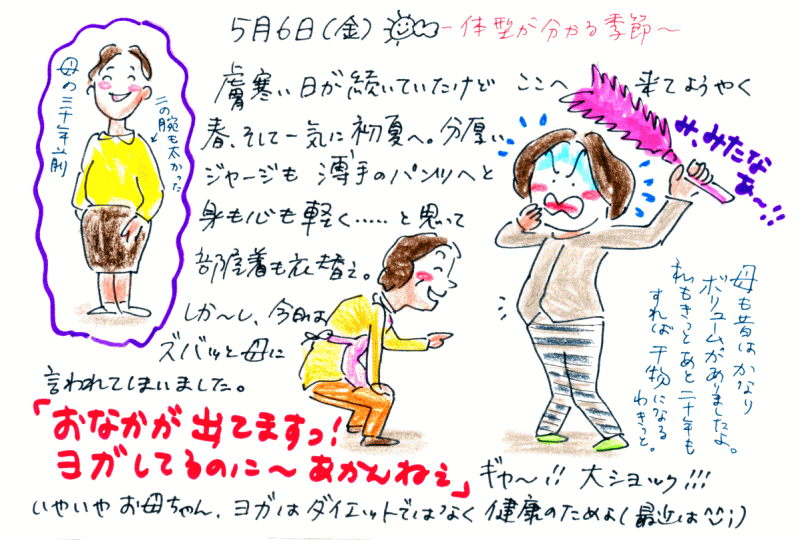 5月6日(金) ~体型が分かる季節~
膚寒い日が続いていたけど ここへ 来てようやく
春、そして一気に初夏へ。分厚い
ジャージも 薄手のパンツへと
身も心も軽く……と思って
部屋着も衣替え。
しか〜し、今日は
ズバッと母に
言われてしまいました。
「おなかが出てますっ!
ヨガしてるのに〜あかんねぇ」
ギャ〜!! 大ショック!!!
いやいや お母ちゃん、ヨガはダイエットではなく 健康のためよ(最近は^^;)
母の三十年前
二の腕も太かった
み、みたな
あ〜!!
母も昔はかなり
ボリュームがありましたよ。
私もきっとあと二十年も
すれば 干物になる
わきっと。